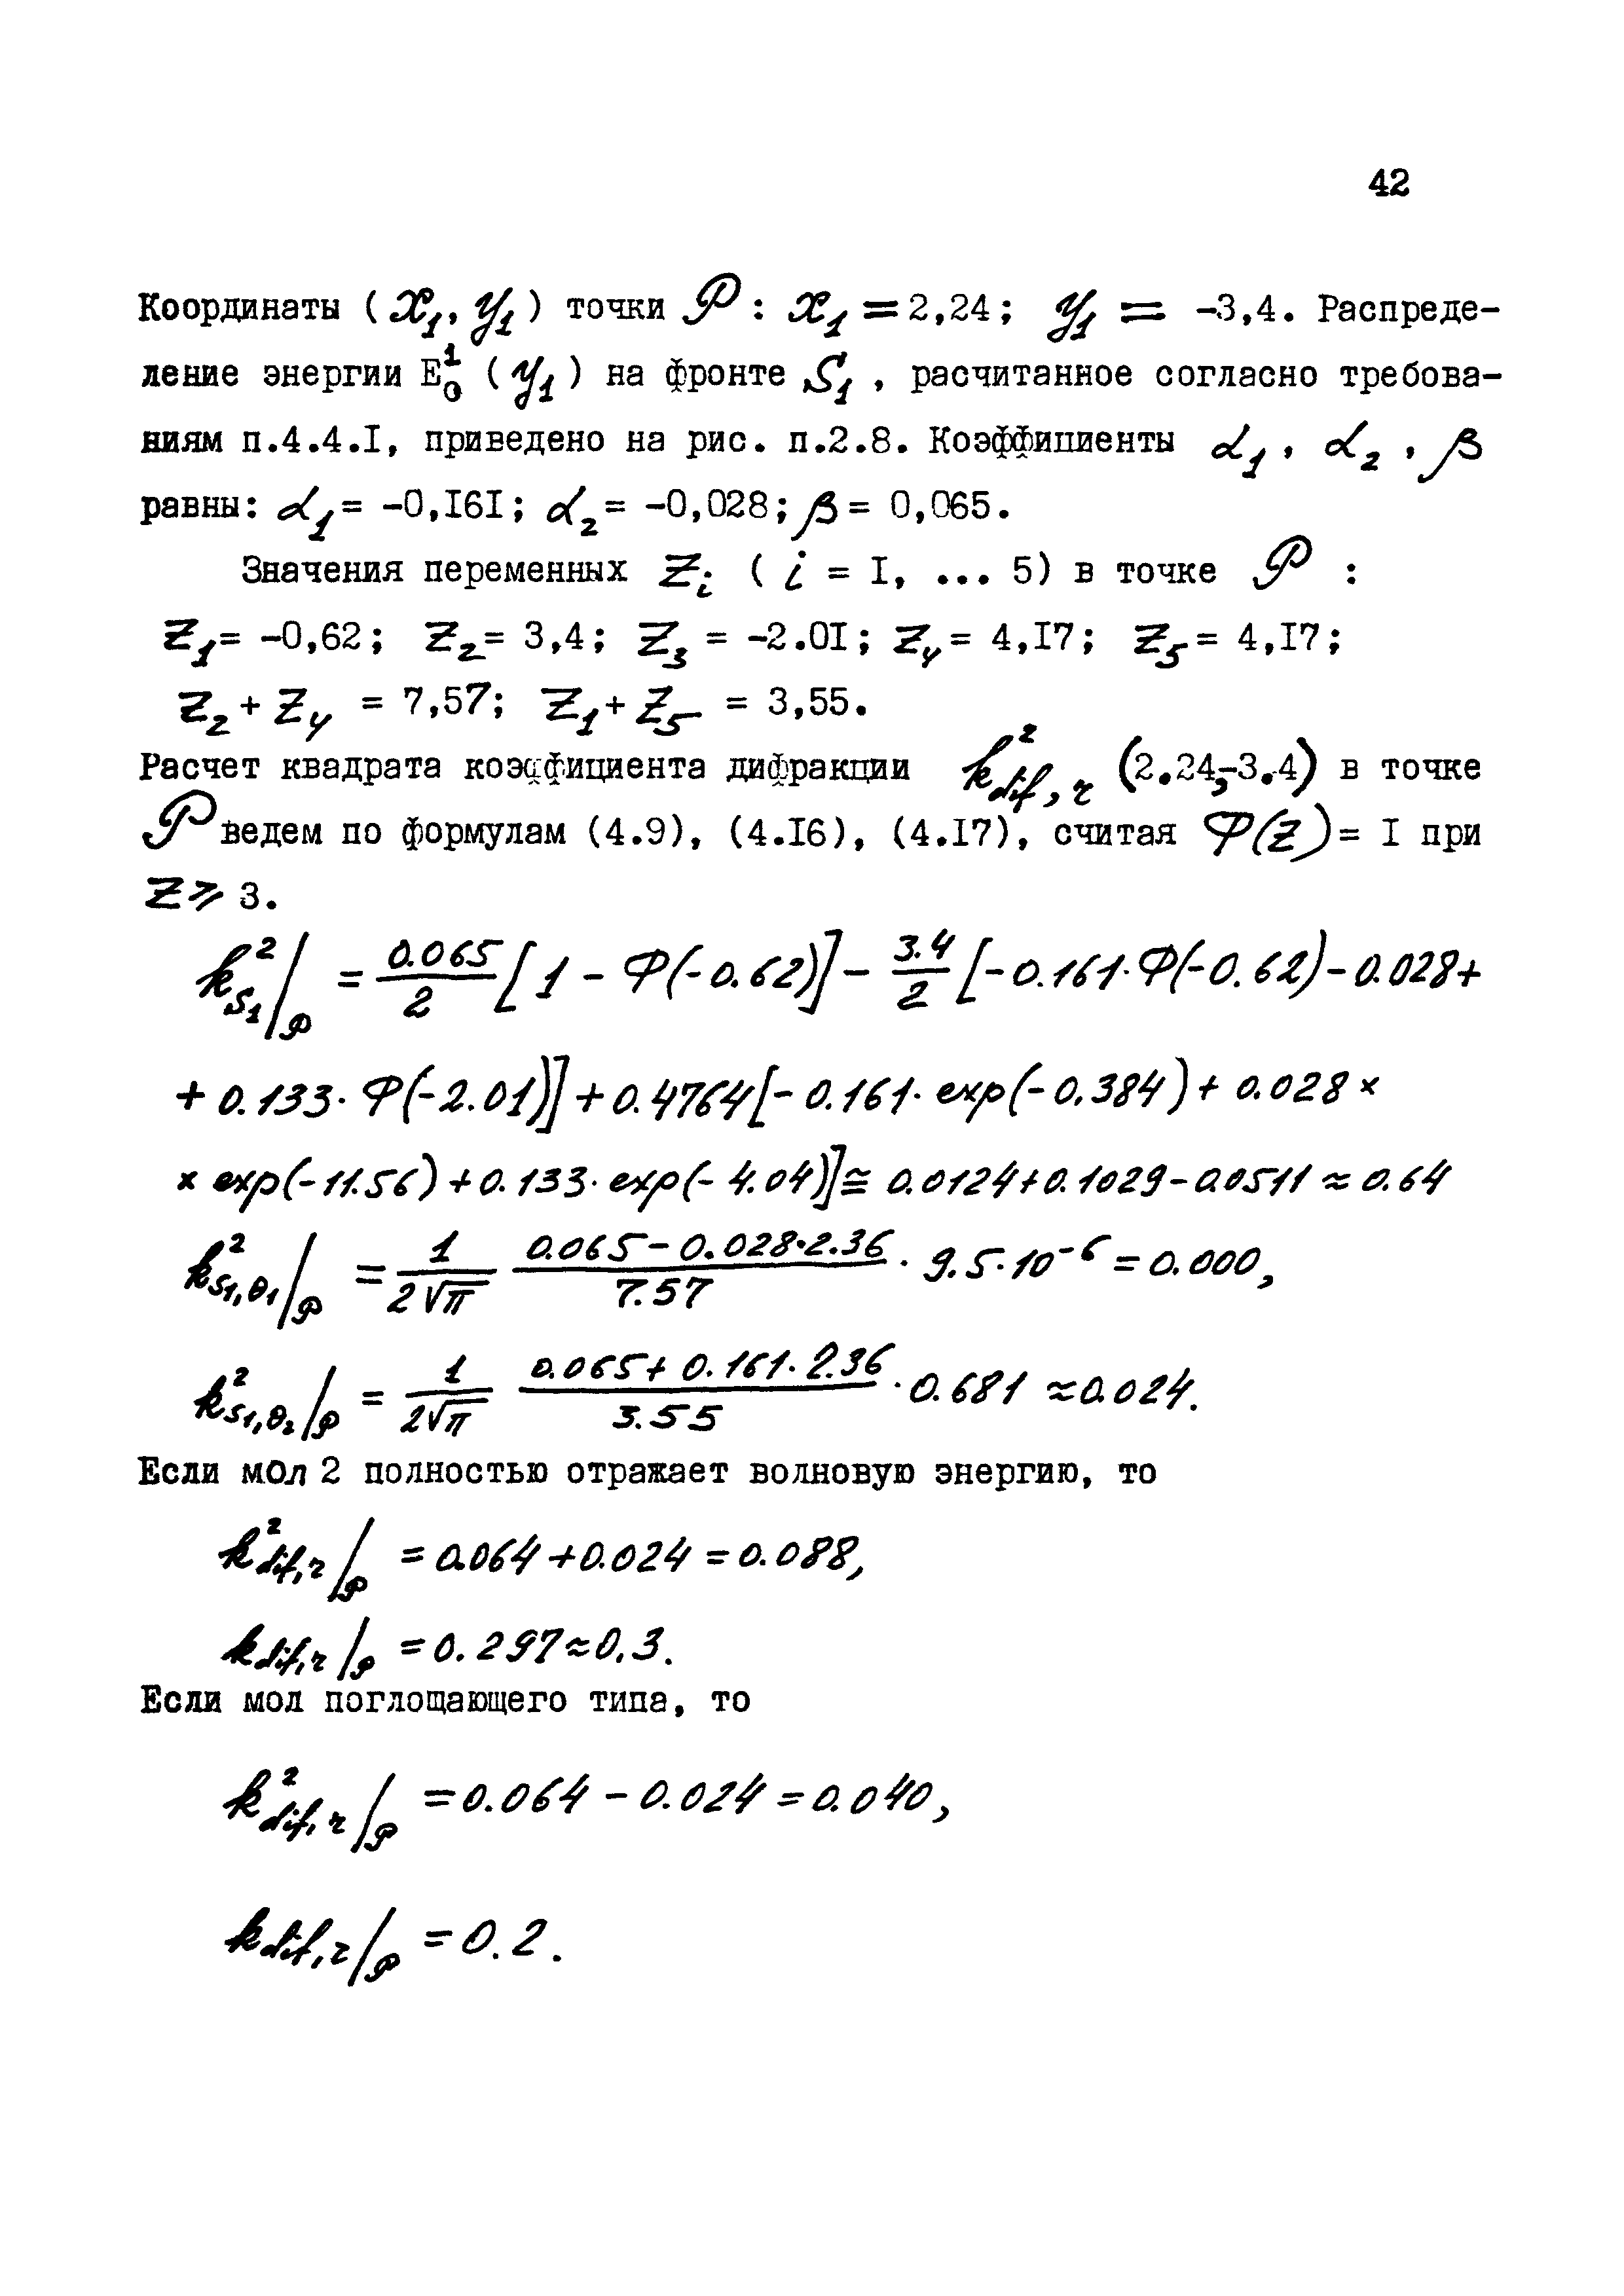 42
Координаты (x₁, y₁) точки 𝒫 : x₁ = 2,24; y₁ = -3,4. Распреде-
ление энергии E₀¹ (y₁) на фронте S₁ , расчитанное согласно требова-
ниям п.4.4.I, приведено на рис. п.2.8. Коэффициенты α₁ , α₂ , β
равны: α₁ = -0,I6I; α₂ = -0,028; β = 0,065.
Значения переменных Zᵢ ( i = I, ... 5) в точке 𝒫 :
Z₁= -0,62; Z₂= 3,4; Z₃ = -2.0I; Z₄= 4,I7; Z₅= 4,I7;
Z₂ + Z₄ = 7,57; Z₁ + Z₅ = 3,55.
Расчет квадрата коэффициента дифракции k²dif,r (2.24,-3.4) в точке
𝒫 ведем по формулам (4.9), (4.I6), (4.I7), считая Φ(Z)= I при
Z ⩾ 3.
k²S₁/𝒫 = 0.065/2 [1 - Φ(-0.62)] - 3.4/2 [-0.161·Φ(-0.62)-0.028+
+ 0.133· Φ(-2.01)] + 0.4764[- 0.161· exp(-0.384) + 0.028 ×
× exp(-11.56) + 0.133· exp(-4.04)] ≅ 0.0124+0.1029-0.0511 ≈ 0.64
k²S₁,θ₁/𝒫 = 1/2√π 0.065-0.028·2.36/7.57 · 9.5·10⁻⁶ = 0.000,
k²S₁,θ₂/𝒫 = 1/2√π 0.065+0.161·2.36/3.55 · 0.681 ≈ 0.024.
Если мол 2 полностью отражает волновую энергию, то
k²dif,r/𝒫 = 0.064 + 0.024 = 0.088,
kdif,r/𝒫 = 0.297 ≈ 0.3.
Если мол поглощающего типа, то
k²dif,r/𝒫 = 0.064 - 0.024 = 0.040,
kdif,r/𝒫 = 0.2.